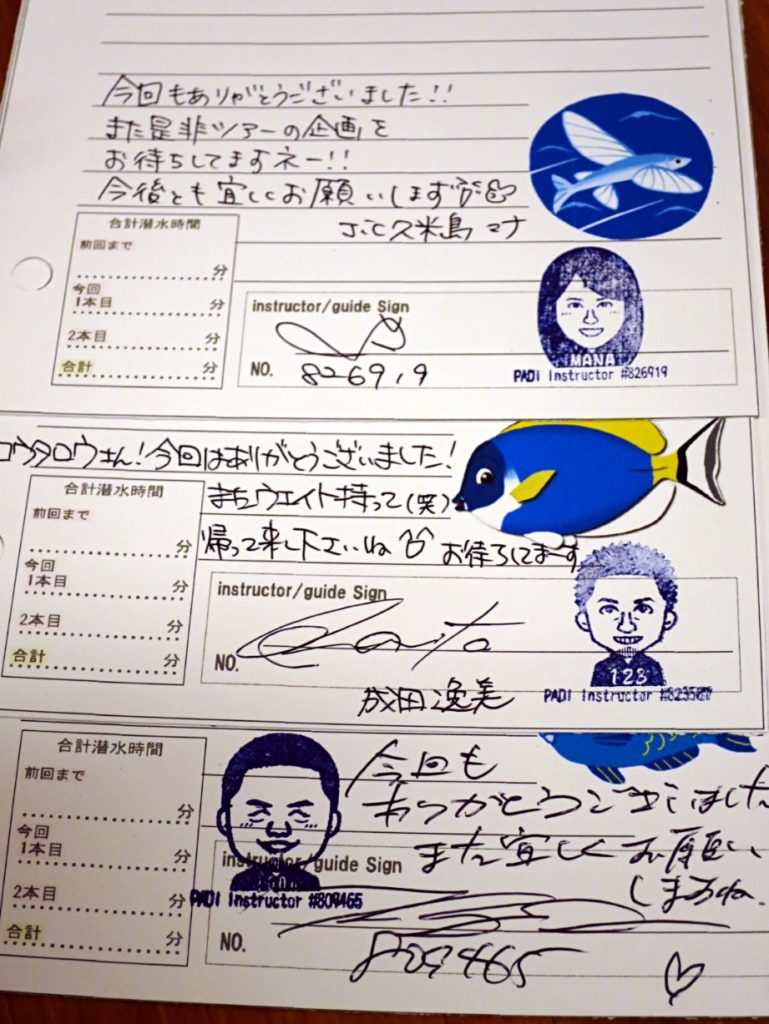 今回もありがとうございました!!
また是非ツアーの企画を
お待ちしてますネー!!
今後とも宜しくお願いします
J.C久米島 マナ
合計潜水時間
前回まで
分
今回
1本目 分
2本目 分
合計 分
instructor/guide Sign
NO. 826919
MANA
PADI Instructor #826919
コウタロウさん!今回はありがとうございました!
またウエイト持って(笑)
帰って来て下さいね お待ちしてまーす
合計潜水時間
前回まで
分
今回
1本目 分
2本目 分
合計 分
instructor/guide Sign
NO.
成田逸美
123
PADI Instructor
今回も
ありがとうございました
また宜しくお願い
しますね.
合計潜水時間
前回まで
分
今回
1本目 分
2本目 分
合計 分
instructor/guide Sign
PADI Instructor #809465
NO. 809465